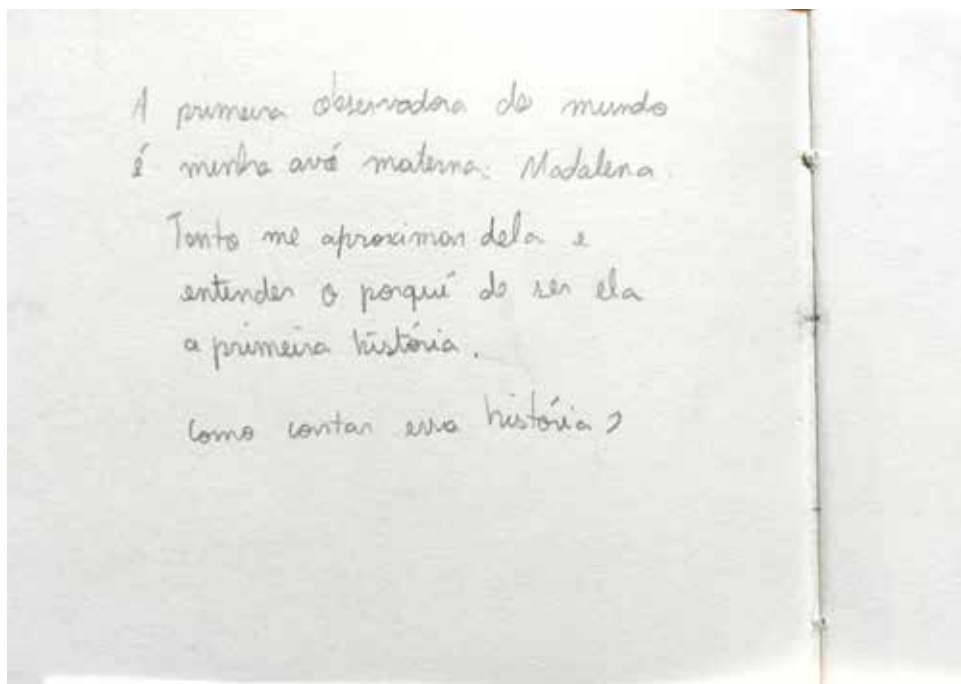 A primeira observadora do mundo
é minha avó materna: Madalena.
Tento me aproximar dela e
entender o porquê de ser ela
a primeira história.
Como contar essa história?